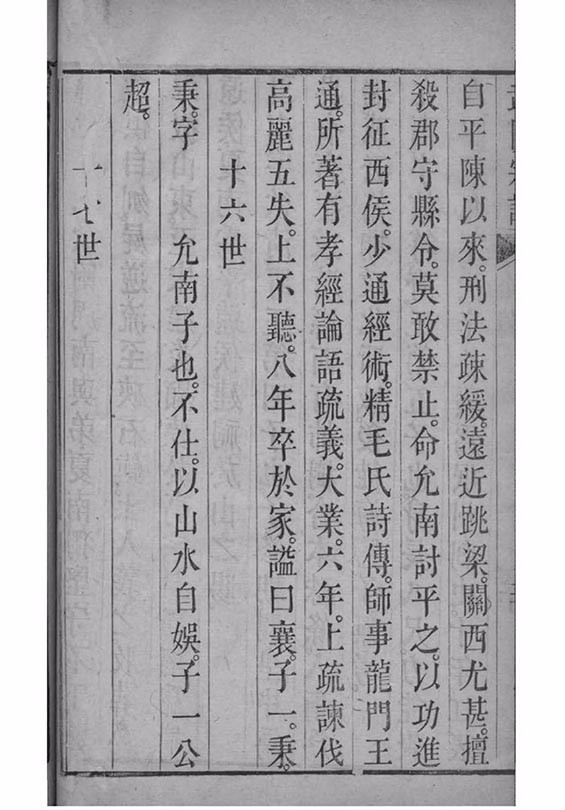 自平陳以來。刑法疎緩。遠近跳梁。關西尤甚。擅
殺郡守縣令。莫敢禁止。命允南討平之。以功進
封征西侯。少通經術。精毛氏詩傳。師事龍門王
通。所著有孝經論語疏義。大業。六年。上疏諫伐
高麗五失。上不聽。八年卒於家。謚曰襄。子一。秉。
十六世
秉。字　允南子也。不仕。以山水自娛。子一公
超。
十　世